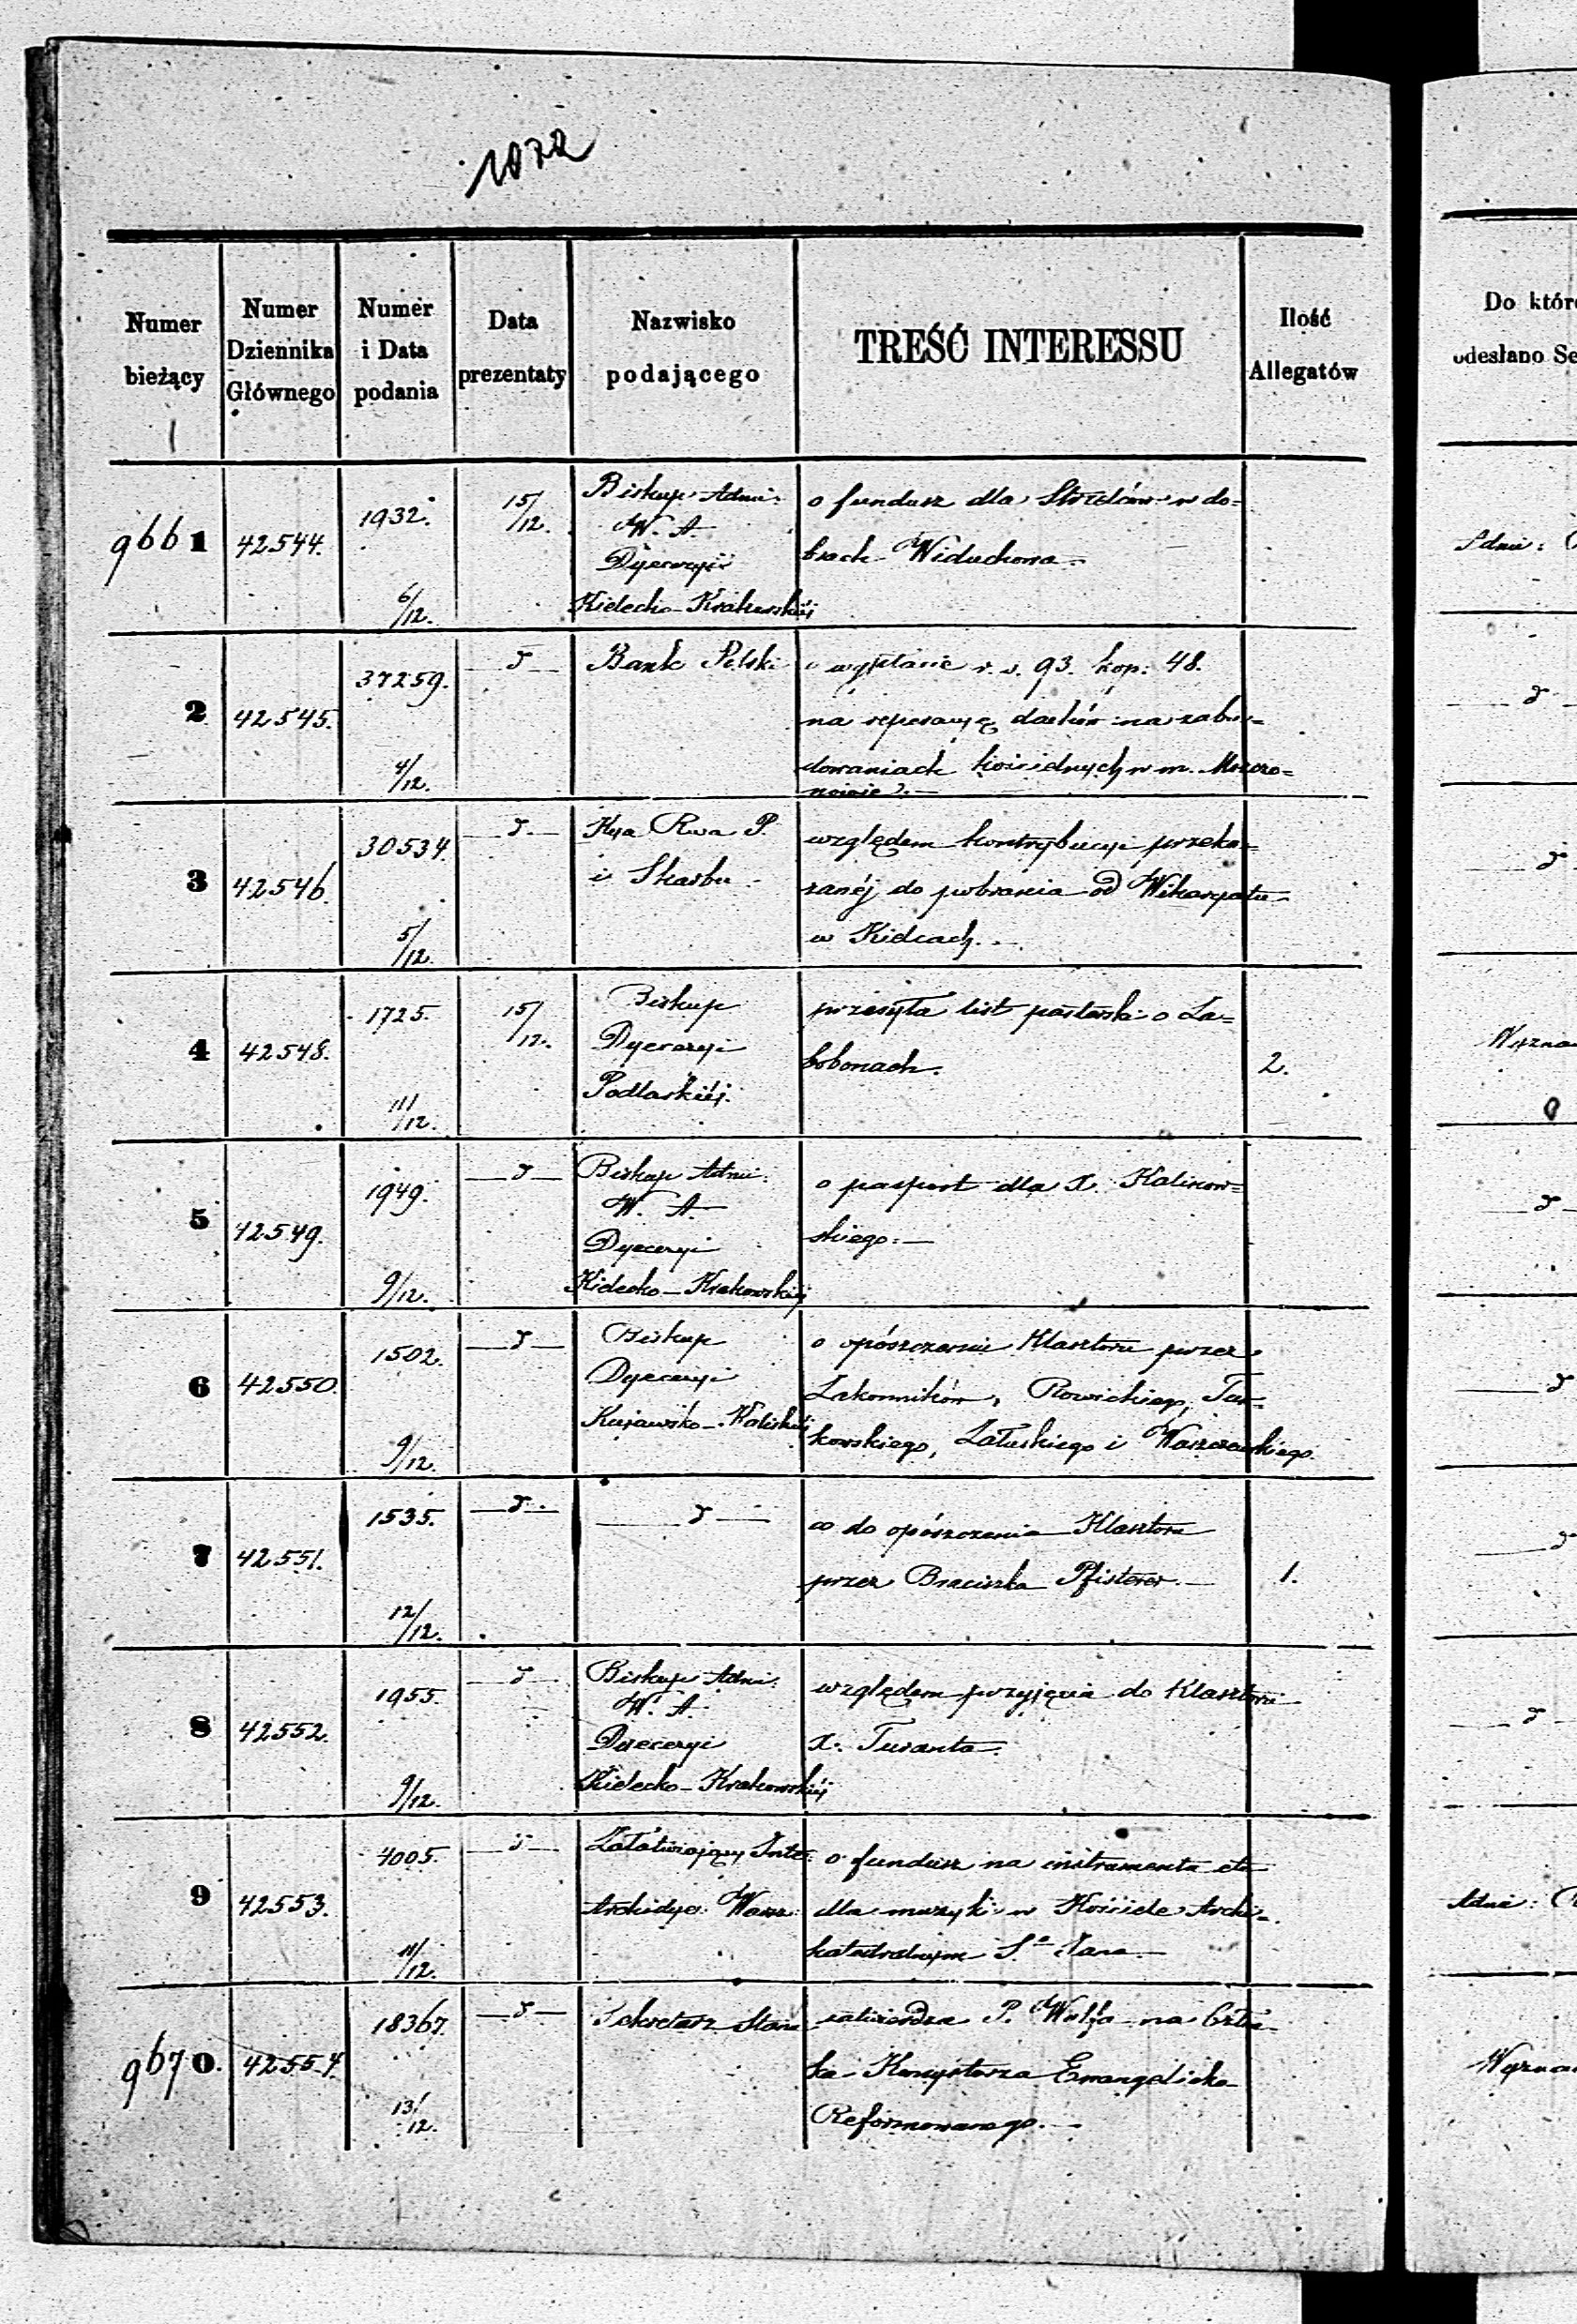 1072
Numer bieżący
Numer Dziennika Głównego
Numer i Data podania
Data prezentaty
Nazwisko podającego
TREŚĆ INTERESSU
Ilość Allegatów
Do któr
odesłano Se
9661 42544. 1932. 6/12. 15/12.
Biskup Admi:
W. A.
Dyecezyi
Kielecko-Krakowskiéj
o fundusz dla w do=
brach Widuchowa.
Admi:
2 42545. 37259. 4/12. — d —
Bank Polski
o wypłacie r. s. 93. kop: 48.
na reperacyą dachów na zabu=
dowaniach kościelnych w m. Mszczo=
nowie.—
— d —
3 42546. 30534. 5/12. — d —
Kya Rwa P.
i Skarbu
względem kontrybucyi przeka=
zanéj do pobrania od Wikaryatu
w Kielcach.
— d
4 42548. 1725. 11/12. 15/12.
Biskup
Dyecezyi
Podlaskiéj.
przesyła list pasterski o Za=
bobonach.
2.
Wyzna
5 42549. 1949. 9/12. — d —
Biskup Admi:
W. A.
Dyecezyi
Kielecko-Krakowskiéj
o paszport dla X. Kalinow=
skiego.—
— d —
6 42550. 1502. 9/12. — d —
Biskup
Dyecezyi
Kujawsko-Kaliskiéj
o opószczeniu Klasztoru przez
Zakonników, Rowickiego, Tur=
kowskiego, Załuskiego i Warszawskiego.
— d
7 42551. 1535. 12/12. — d —
— d —
co do opószczenia Klasztoru
przez Braciszka Pfisterer.—
1.
— d
8 42552. 1955. 9/12. — d —
Biskup Admi:
W. A.
Dyecezyi
Kielecko-Krakowskiéj
względem przyjęcia do Klasztoru
X. Turanta.
— d
9 42553. 4005. 11/12. — d —
Załatwiający Inte:
Archidyec: Warsz:
o fundusz na instrumenta etc
dla muzyki w Kościele Archi=
katedralnym Sgo Jana.—
Admi:
9670. 42554. 18367. 13/12. — d —
Sekretarz Stanu
zatwierdza P. Wolfa na Człon=
ka Konsystorza Ewangelicko
Reformowanego.—
Wyznań